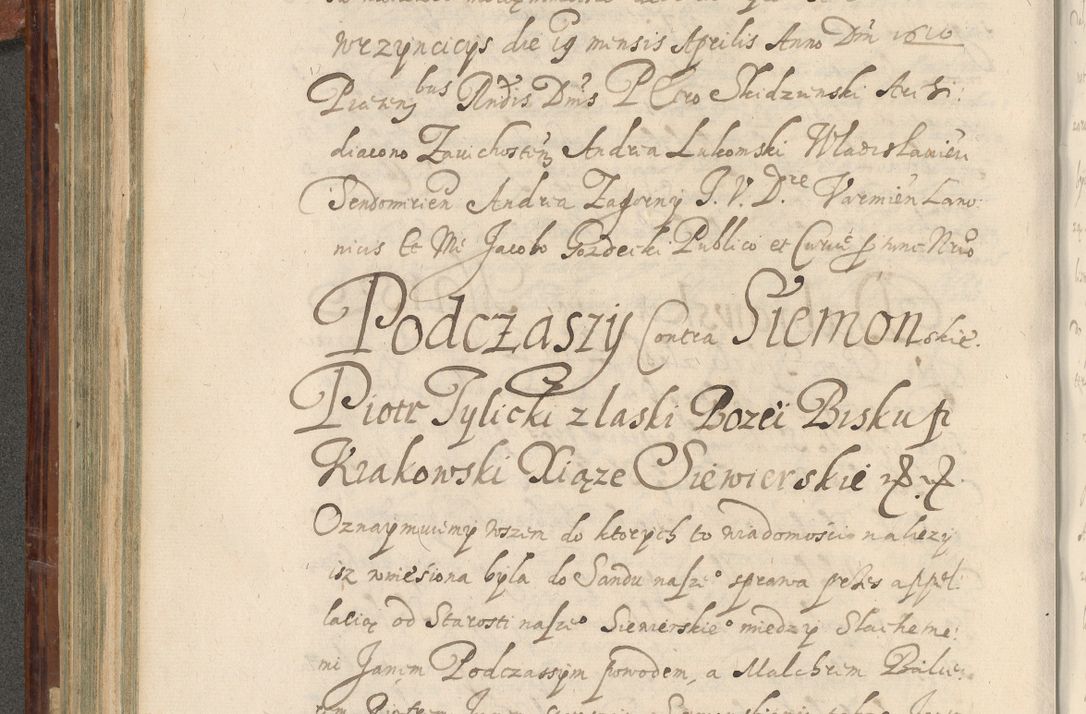 wrzyncicys die 19 mensis Aprilis Anno Dni 1610
Praesentibus Rndis Dnis Petro Skidzinski Archi
diacono Zavichosten Andrea Lukomski Wladislavien
Sendomirien Andrea Zagorny J. V. Dre Varmien Cano
nicis Et Me Jacobo Gozdecki Publico et Curiae p nunc Nrio
Podczaszy Contra Siemonskie.
Piotr Tylicki z laski Bozeÿ Biskup
Krakowski Xiąze Siewierskie
Oznaymuiemy wszem do ktorych to wiadomoscio naliezy
isz wniesiona byla do Sandu nasze° sprawa przes appel:
lacią od Starosti nasze° Siewierskie° miedzy Slachetne:
mi Janem Podczasszym powodem, a Malchrem